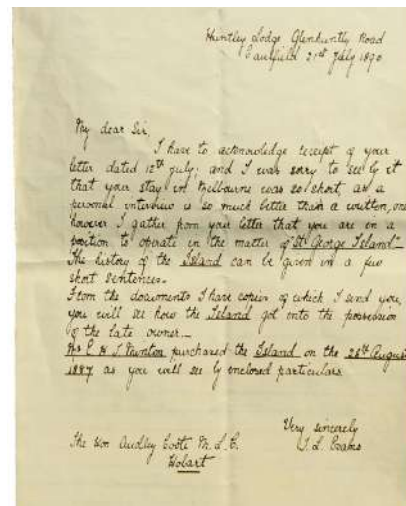 Huntley Lodge Glenhuntly Road
Caulfield 21st July 1890
My dear Sir,
I have to acknowledge receipt of your
letter dated 12th July; and I was sorry to see by it
that your stay in Melbourne was so short, as a
personal interview is so much better than a written, one
however I gather from your letter that you are in a
position to operate in the matter of "St George Island"
The history of the Island can be given in a few
short sentences.
From the documents I have copies of which I send you,
you will see how the Island got into the possession
of the late owner.—
purchased the Island on the 26th August
1887 as you will see by enclosed particulars
Very sincerely
J. L. Evans
The Hon Audley Coote M.L.C.
Hobart